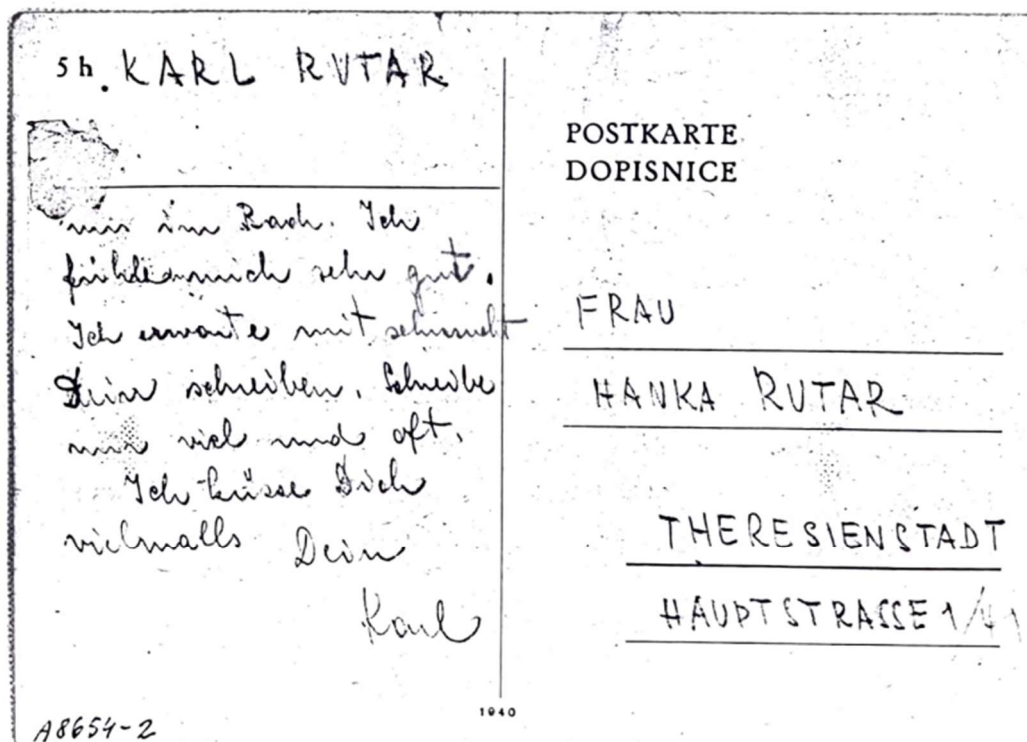 5 h. KARL RUTAR
mir im Bach. Ich
fühle mich sehr gut.
Ich erwarte mit sehnsucht
Dein schreiben. Schreibe
mir viel und oft.
Ich küsse Dich
vielmalls Dein
Karl
A8654-2
POSTKARTE
DOPISNICE
FRAU
HANKA RUTAR
THERESIENSTADT
HAUPTSTRASSE 1/41
1940